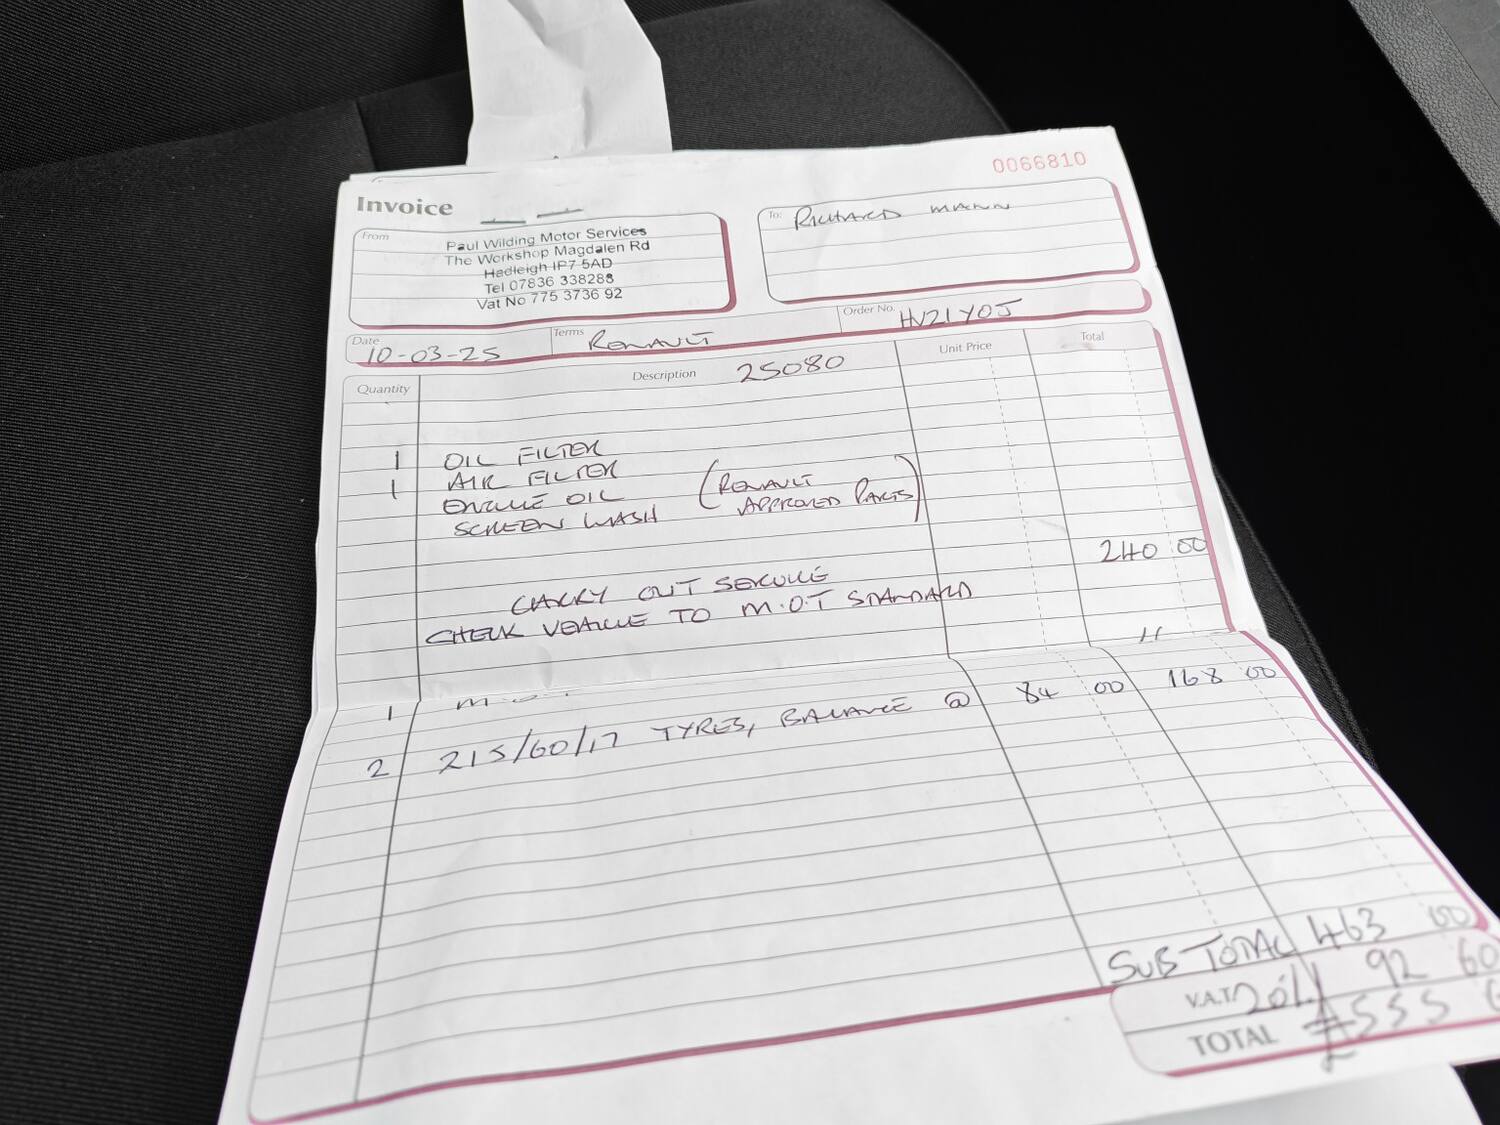 0066810
Invoice
From
Paul Wilding Motor Services
The Workshop Magdalen Rd
Hadleigh IP7 5AD
Tel 07836 338288
Vat No 775 3736 92
To: RICHARD MANN
Date 10-03-25
Terms RENAULT
Order No. HV21YOJ
Quantity Description 25080 Unit Price Total
1 OIL FILTER
1 AIR FILTER
ENGINE OIL (RENAULT
SCREEN WASH APPROVED PARTS)
240 00
CARRY OUT SERVICE
CHECK VEHICLE TO M.O.T STANDARD
1
2 215/60/17 TYRES, BALANCE @ 84 00 168 00
SUB-TOTAL 463 00
V.A.T 20% 92 60
TOTAL £555